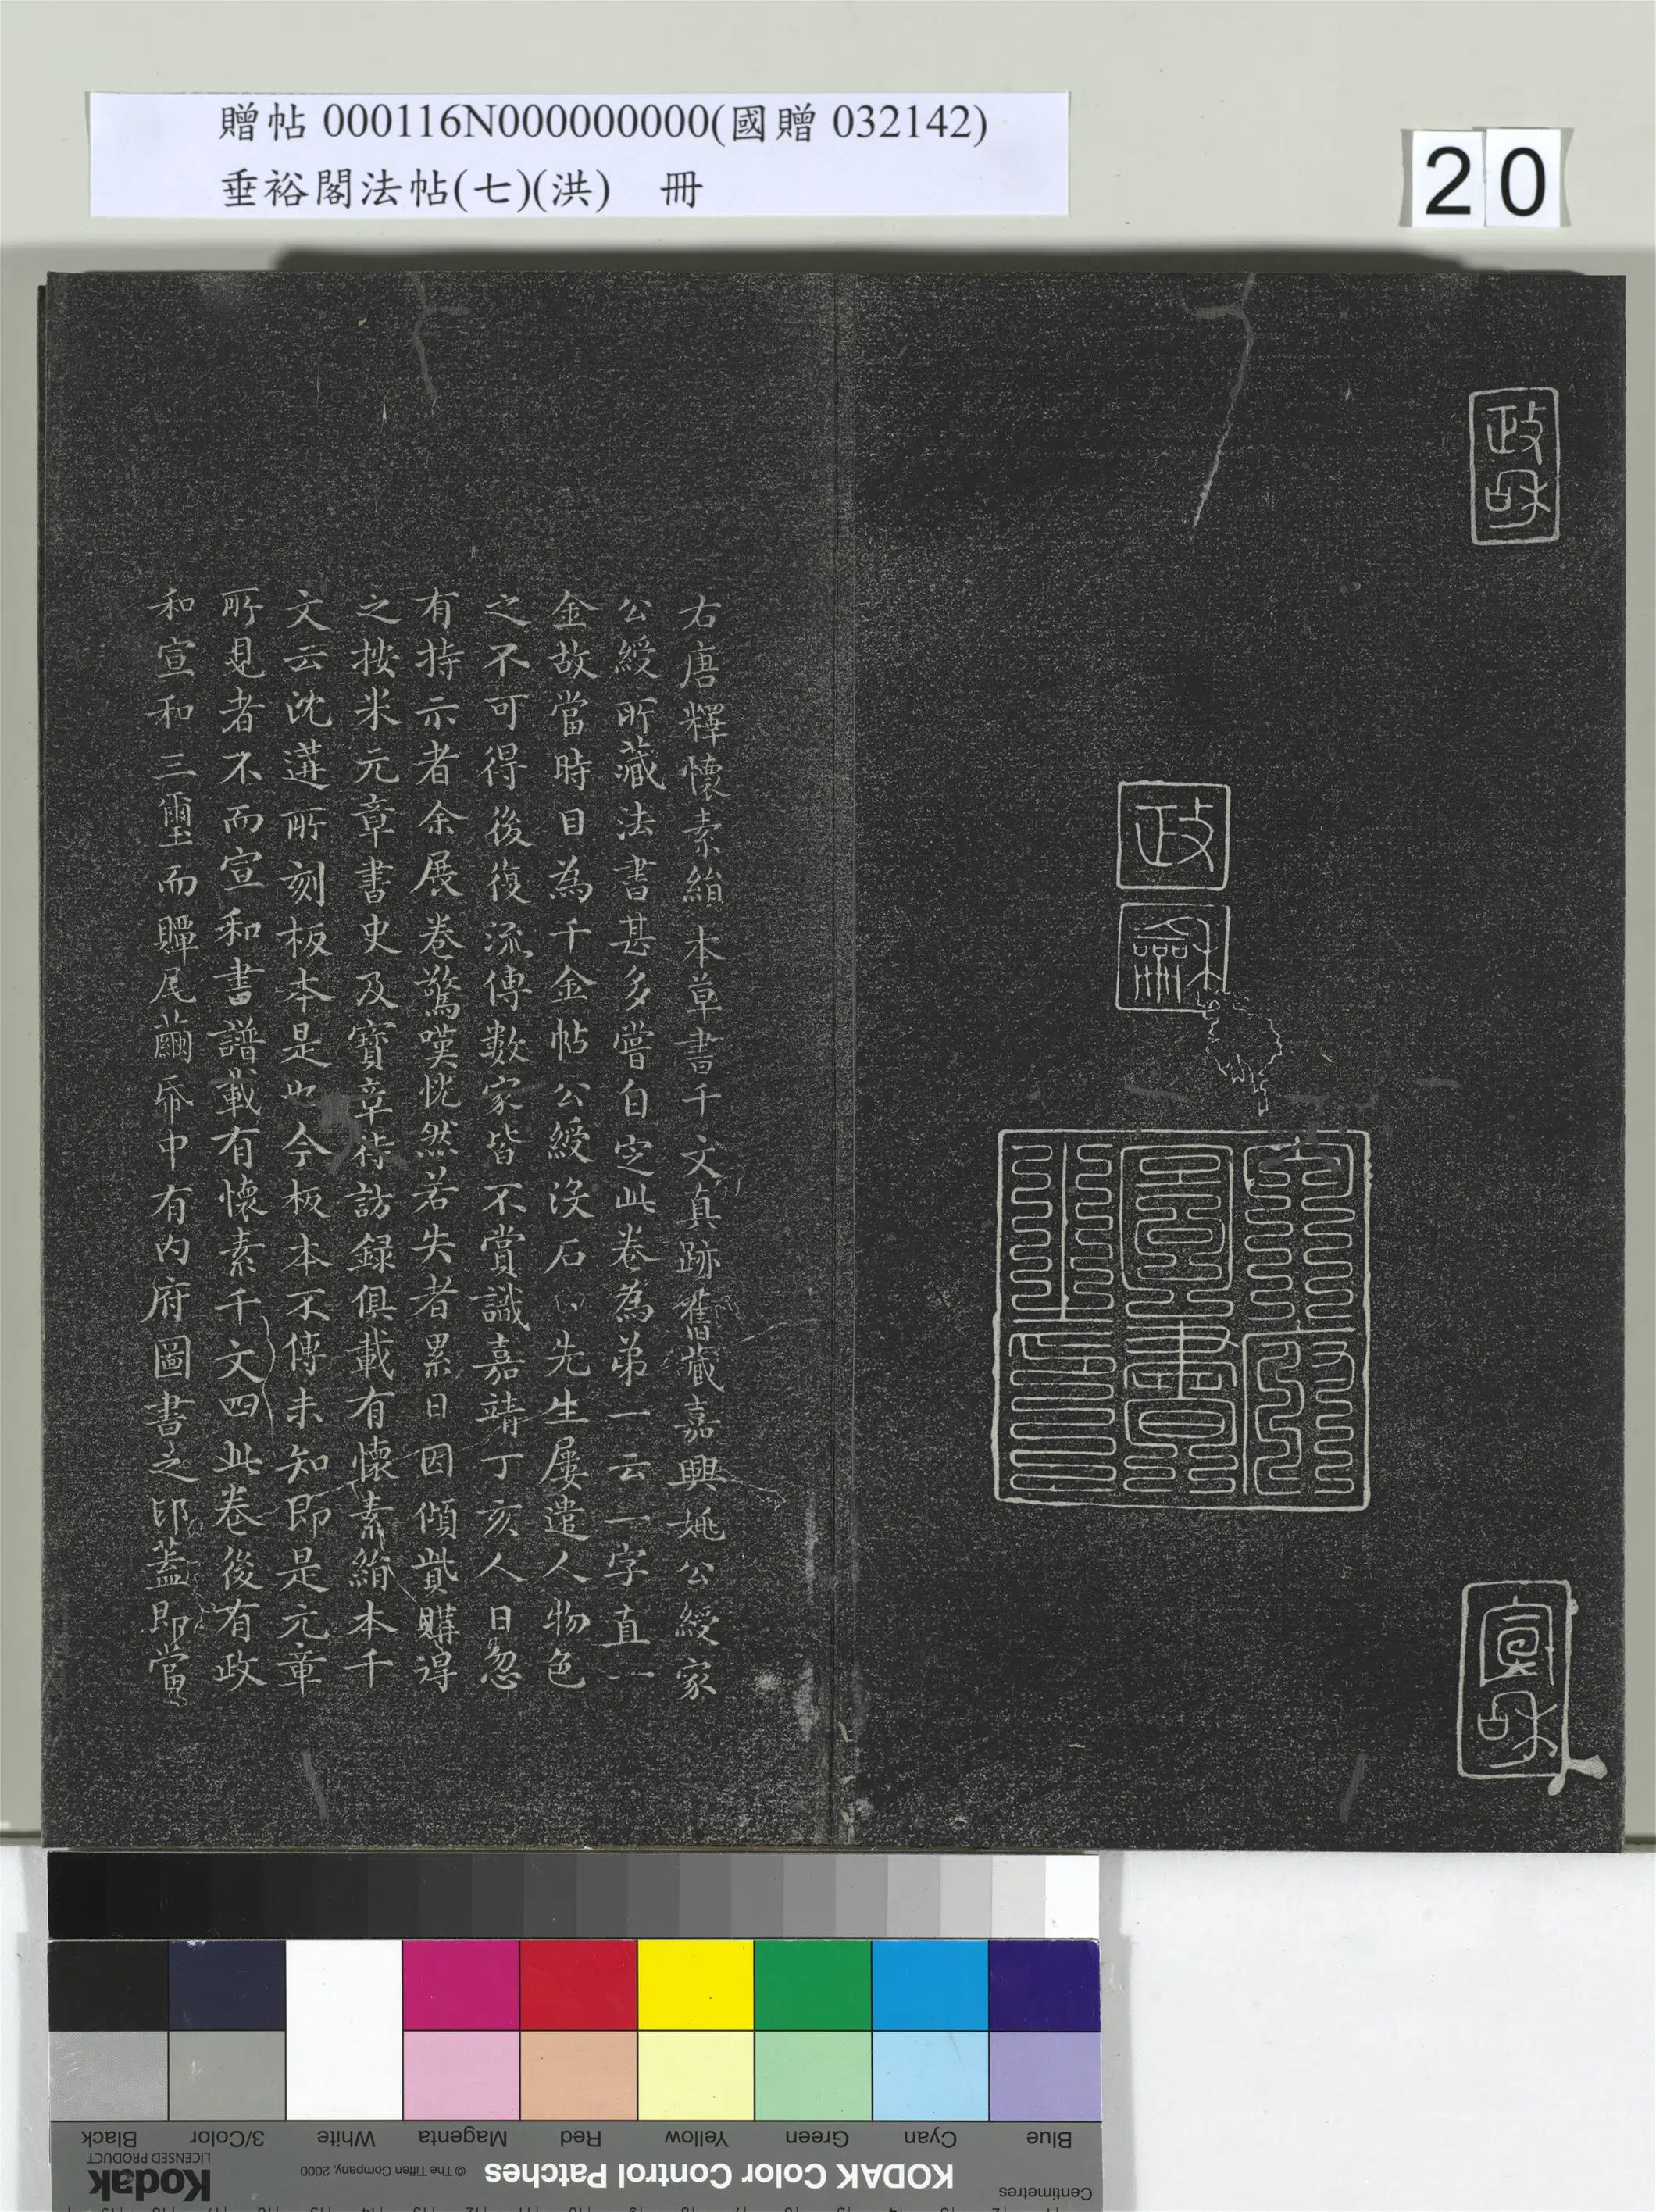 贈帖 000116N000000000(國贈 032142)
垂裕閣法帖(七)(洪) 冊
20
政和
政
龢
內府圖書之印
宣和
右唐釋懷素絹本草書千文真跡舊藏嘉興姚公綬家
公綬所藏法書甚多嘗自定此卷為弟一云一字直一
金故當時目為千金帖公綬沒石田先生屢遣人物色
之不可得後復流傳數家皆不賞識嘉靖丁亥人日忽
有持示者余展卷驚嘆恍然若失者累日因傾貲購得
之按米元章書史及寶章待訪録俱載有懷素絹本千
文云沈遘所刻板本是也今板本不傳未知即是元章
所見者不而宣和書譜載有懷素千文四此卷後有政
和宣和三璽而贉尾繭帋中有內府圖書之印蓋即當
Blue
Cyan
Green
Yellow
Red
Magenta
White
3/Color
Black
Centimetres
KODAK Color Control Patches
© The Tiffen Company, 2000
Kodak
LICENSED PRODUCT